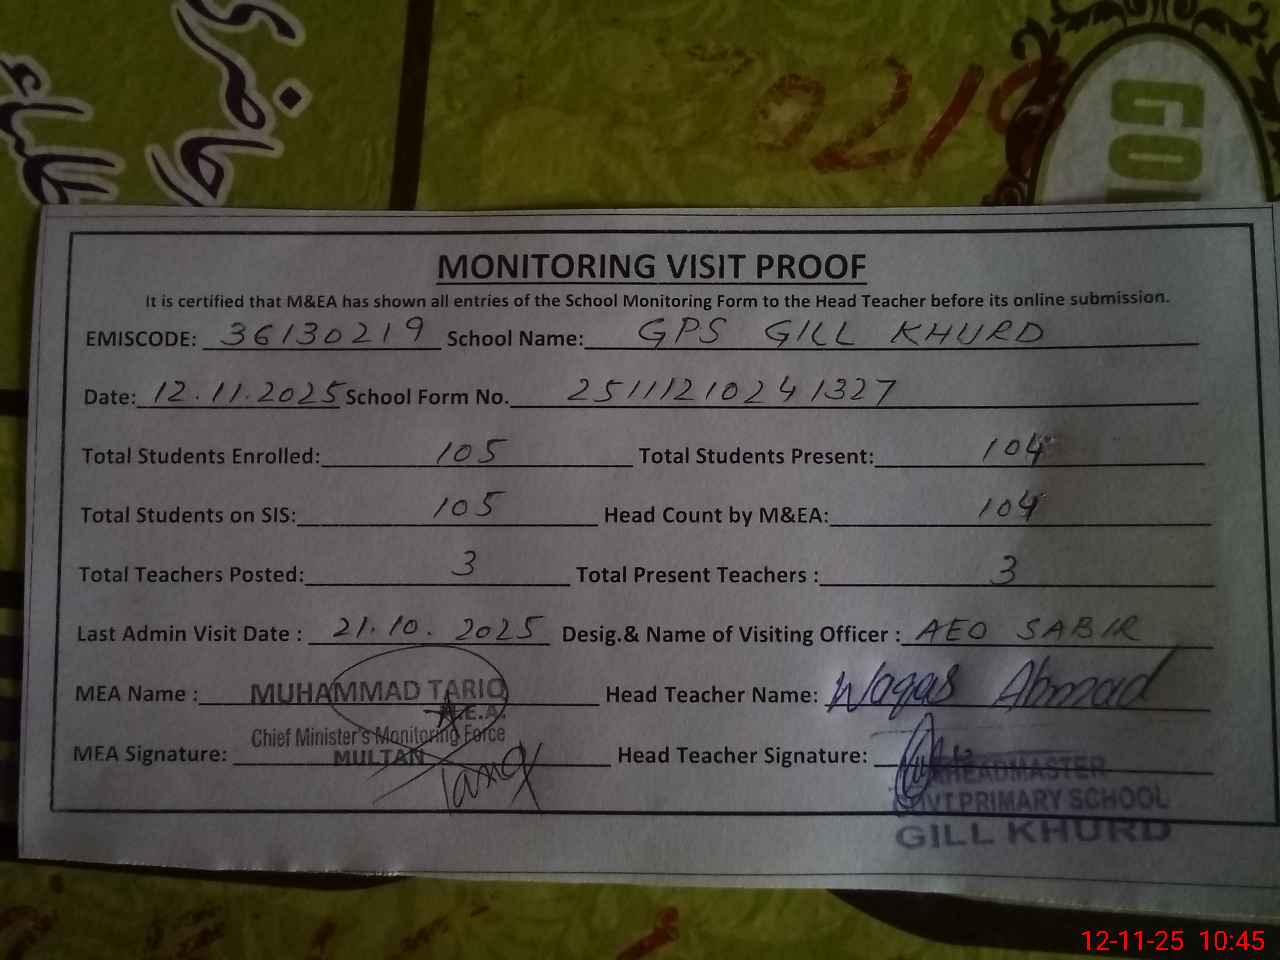 حاضری
طلباء
0219
GO
MONITORING VISIT PROOF
It is certified that M&EA has shown all entries of the School Monitoring Form to the Head Teacher before its online submission.
EMISCODE: 36130219 School Name: GPS GILL KHURD
Date: 12.11.2025 School Form No. 25111210241327
Total Students Enrolled: 105 Total Students Present: 104
Total Students on SIS: 105 Head Count by M&EA: 104
Total Teachers Posted: 3 Total Present Teachers : 3
Last Admin Visit Date : 21.10.2025 Desig.& Name of Visiting Officer : AEO SABIR
MEA Name : MUHAMMAD TARIQ Head Teacher Name: Waqas Ahmad
M.E.A.
Chief Minister's Monitoring Force
MULTAN
MEA Signature: Tariq Head Teacher Signature:
HEADMASTER
GOVT PRIMARY SCHOOL
GILL KHURD
12-11-25 10:45